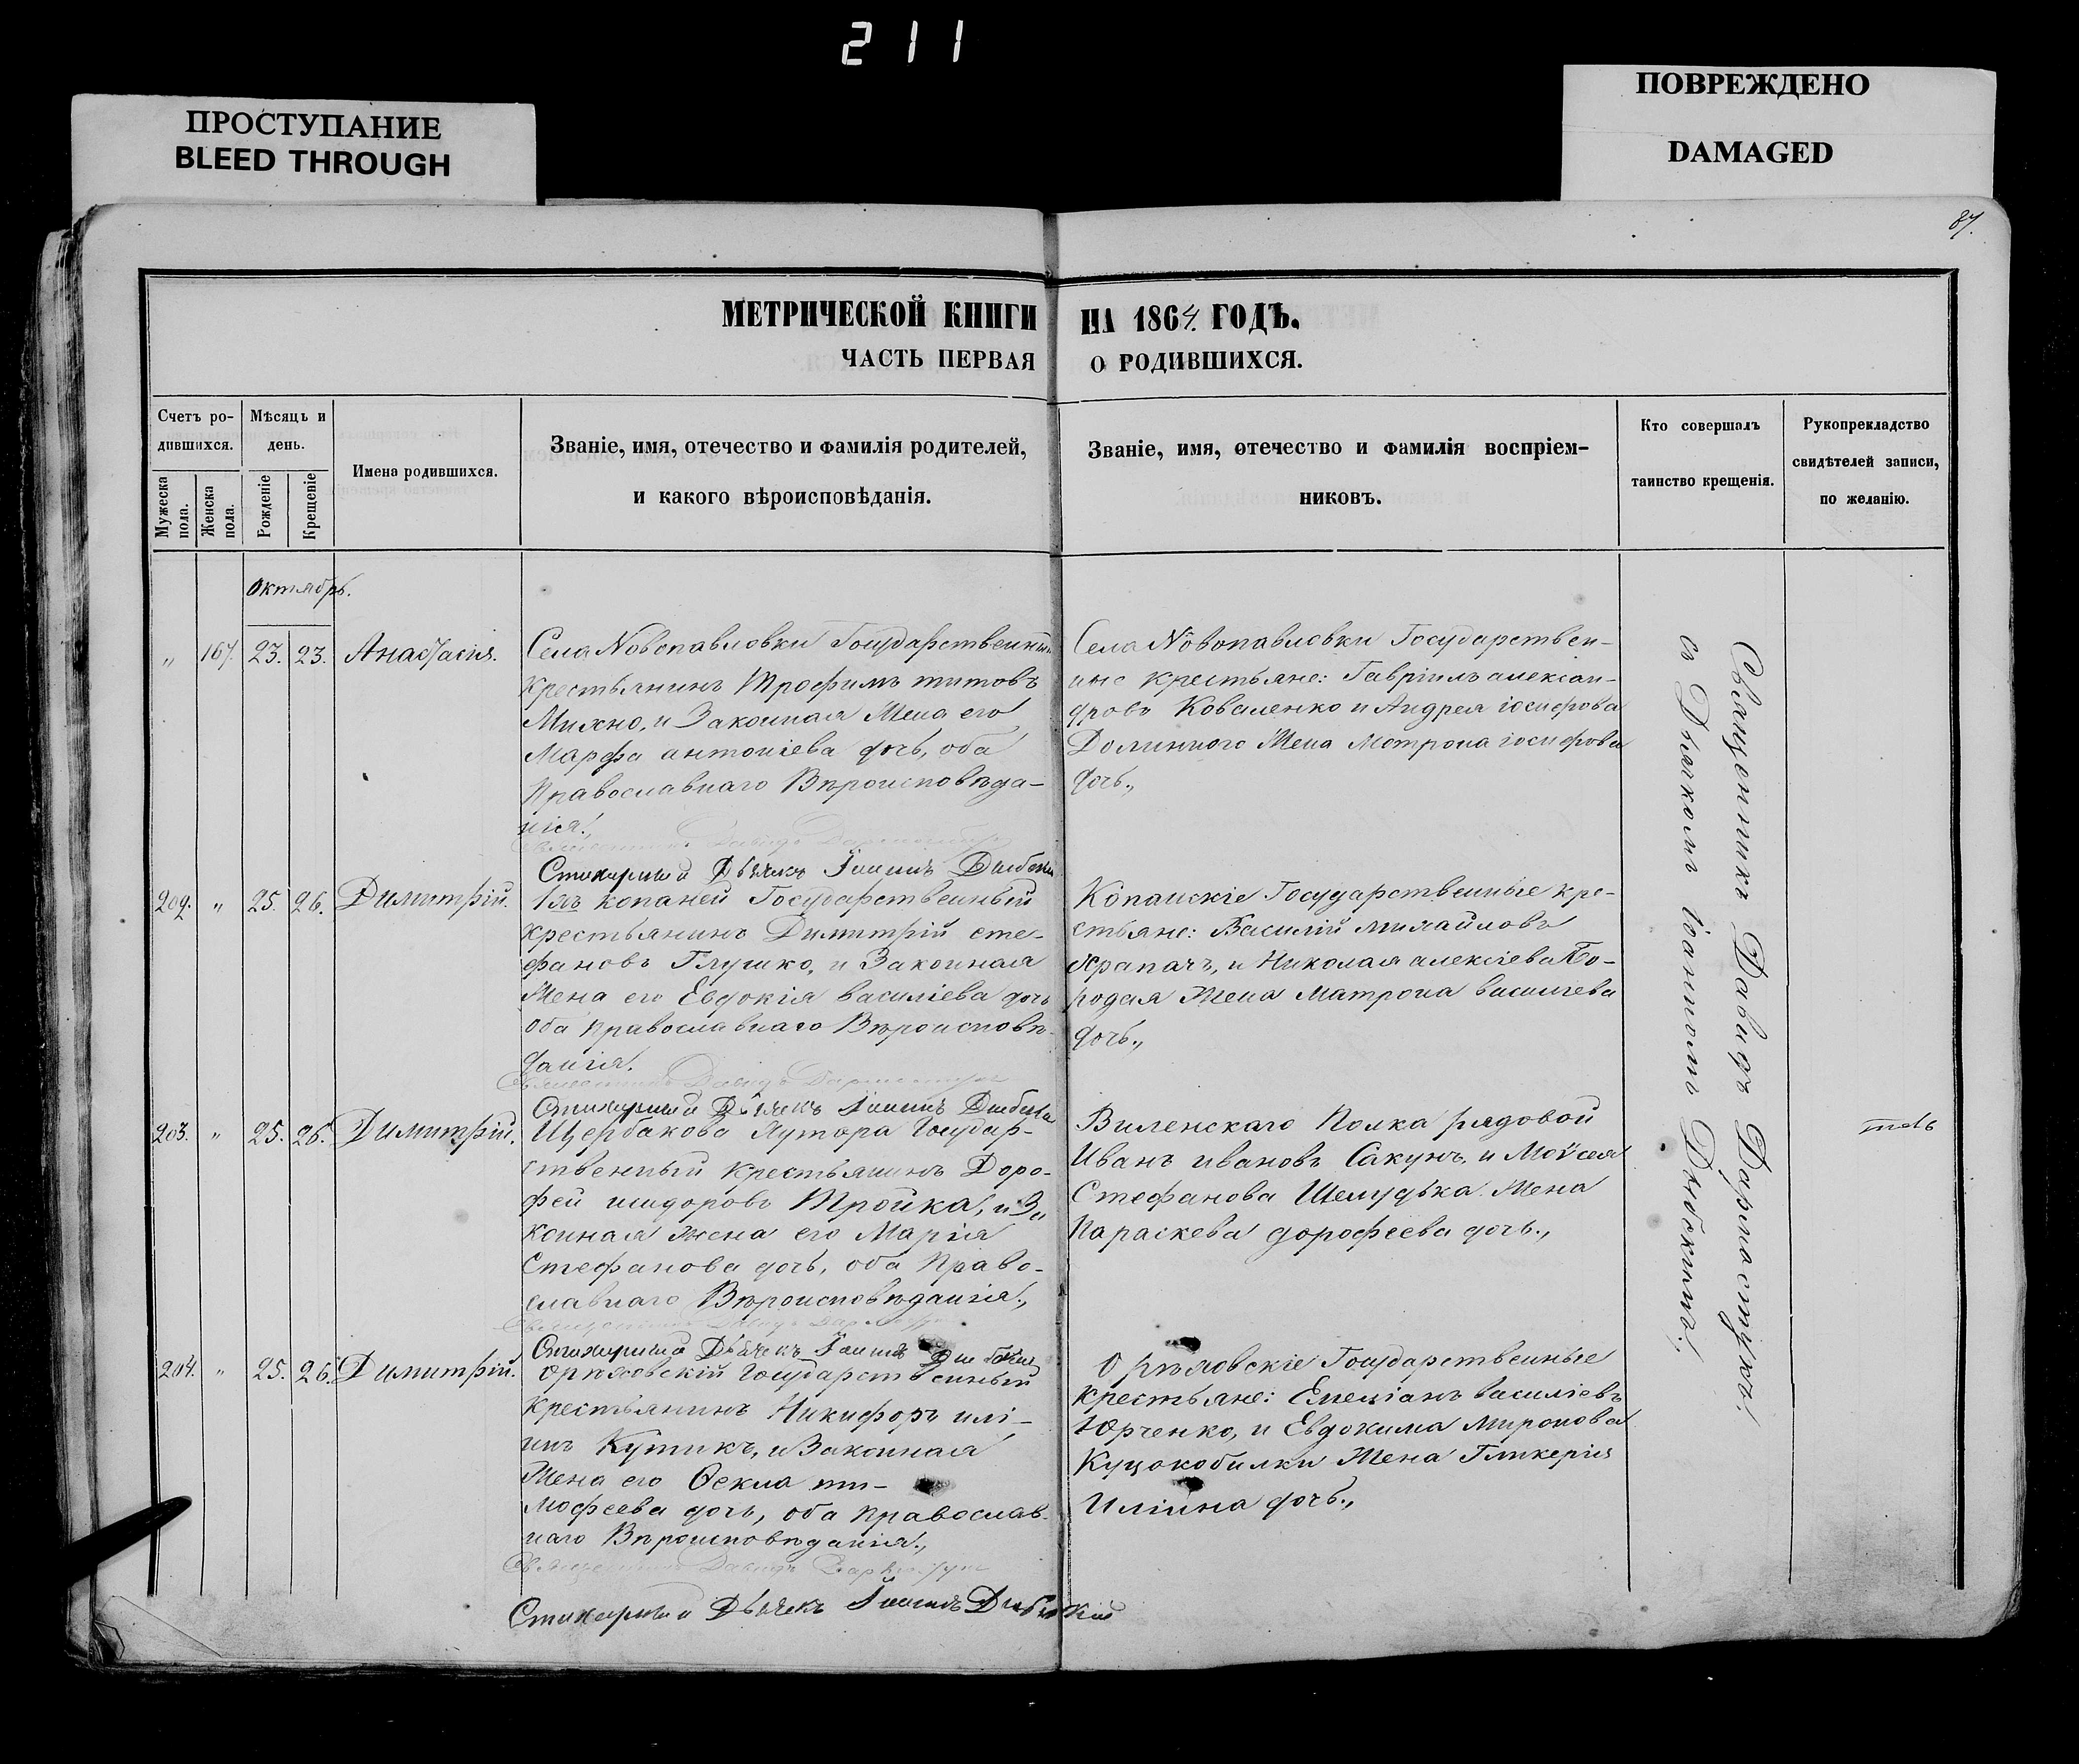 211
ПРОСТУПАНИЕ
BLEED THROUGH
ПОВРЕЖДЕНО
DAMAGED
87.
МЕТРИЧЕСКОЙ КНИГИ НА 1864 ГОДЪ.
ЧАСТЬ ПЕРВАЯ О РОДИВШИХСЯ.
Счетъ ро-
дившихся.
Мужеска
пола.
Женска
пола.
Мѣсяцъ и
день.
Рожденіе
Крещеніе
Имена родившихся.
Званіе, имя, отечество и фамилія родителей,
и какого вѣроисповѣданія.
Званіе, имя, отечество и фамилія воспріем-
никовъ.
Кто совершалъ
таинство крещенія.
Рукопрекладство
свидѣтелей записи,
по желанію.
Октябрь.
„ 167. 23. 23. Анастасія.
Села Новопавловки Государственный
крестьянинъ Трофимъ титовъ
Михно, и Законная Жена его
Марфа антоніева дочь, оба
Православнаго Вѣроисповѣда-
нія.,
Села Новопавловки Государствен-
ные крестьяне: Гавріилъ алексан-
дровъ Коваленко и Андрея іосифова
Долинного Жена Мотрона іосифова
дочь.,
Стихарный Дьячекъ Іоаннъ
202. „ 25. 26. Димитрій.
копаней Государственный
крестьянинъ Димитрій сте-
фановъ Глушко, и Законная
Жена его Евдокія василіева дочь
оба православнаго Вѣроисповѣ-
данія.
Копанскіе Государственные кре-
стьяне: Василій михайловъ
Храпачъ, и Николая алексіева Бо-
родая Жена Матрона василіева
дочь.,
Стихарный Дьячекъ Іоаннъ
203. „ 25. 26. Димитрій.
Щербакова Хутора Государ-
ственный крестьянинъ Доро-
фей исидоровъ Тройка, и За
конная жена его Марія
Стефанова дочь, оба Право-
славнаго Вѣроисповѣданія.,
Виленскаго Полка рядовой
Иванъ ивановъ Сакунъ, и Мойсея
Стефанова Шелудька Жена
Параскева дорофеева дочь.,
Стихарный Дьячекъ Іоаннъ
204. „ 25. 26. Димитрій.
Орѣховскій Государственный
крестьянинъ Никифоръ илі-
инъ Кутикъ, и Законная
Жена его Ѳекла ти-
мофеева дочь, оба православ-
наго Вѣроисповѣданія.,
Орѣховскіе Государственные
крестьяне: Емеліанъ василіевъ
Юрченко, и Евдокима Миронова
Куцокобилки Жена Гликерія
Иліина дочь.,
Стихарный Дьячекъ Іоаннъ
Священникъ Давидъ
съ Дьячкомъ Іоанномъ